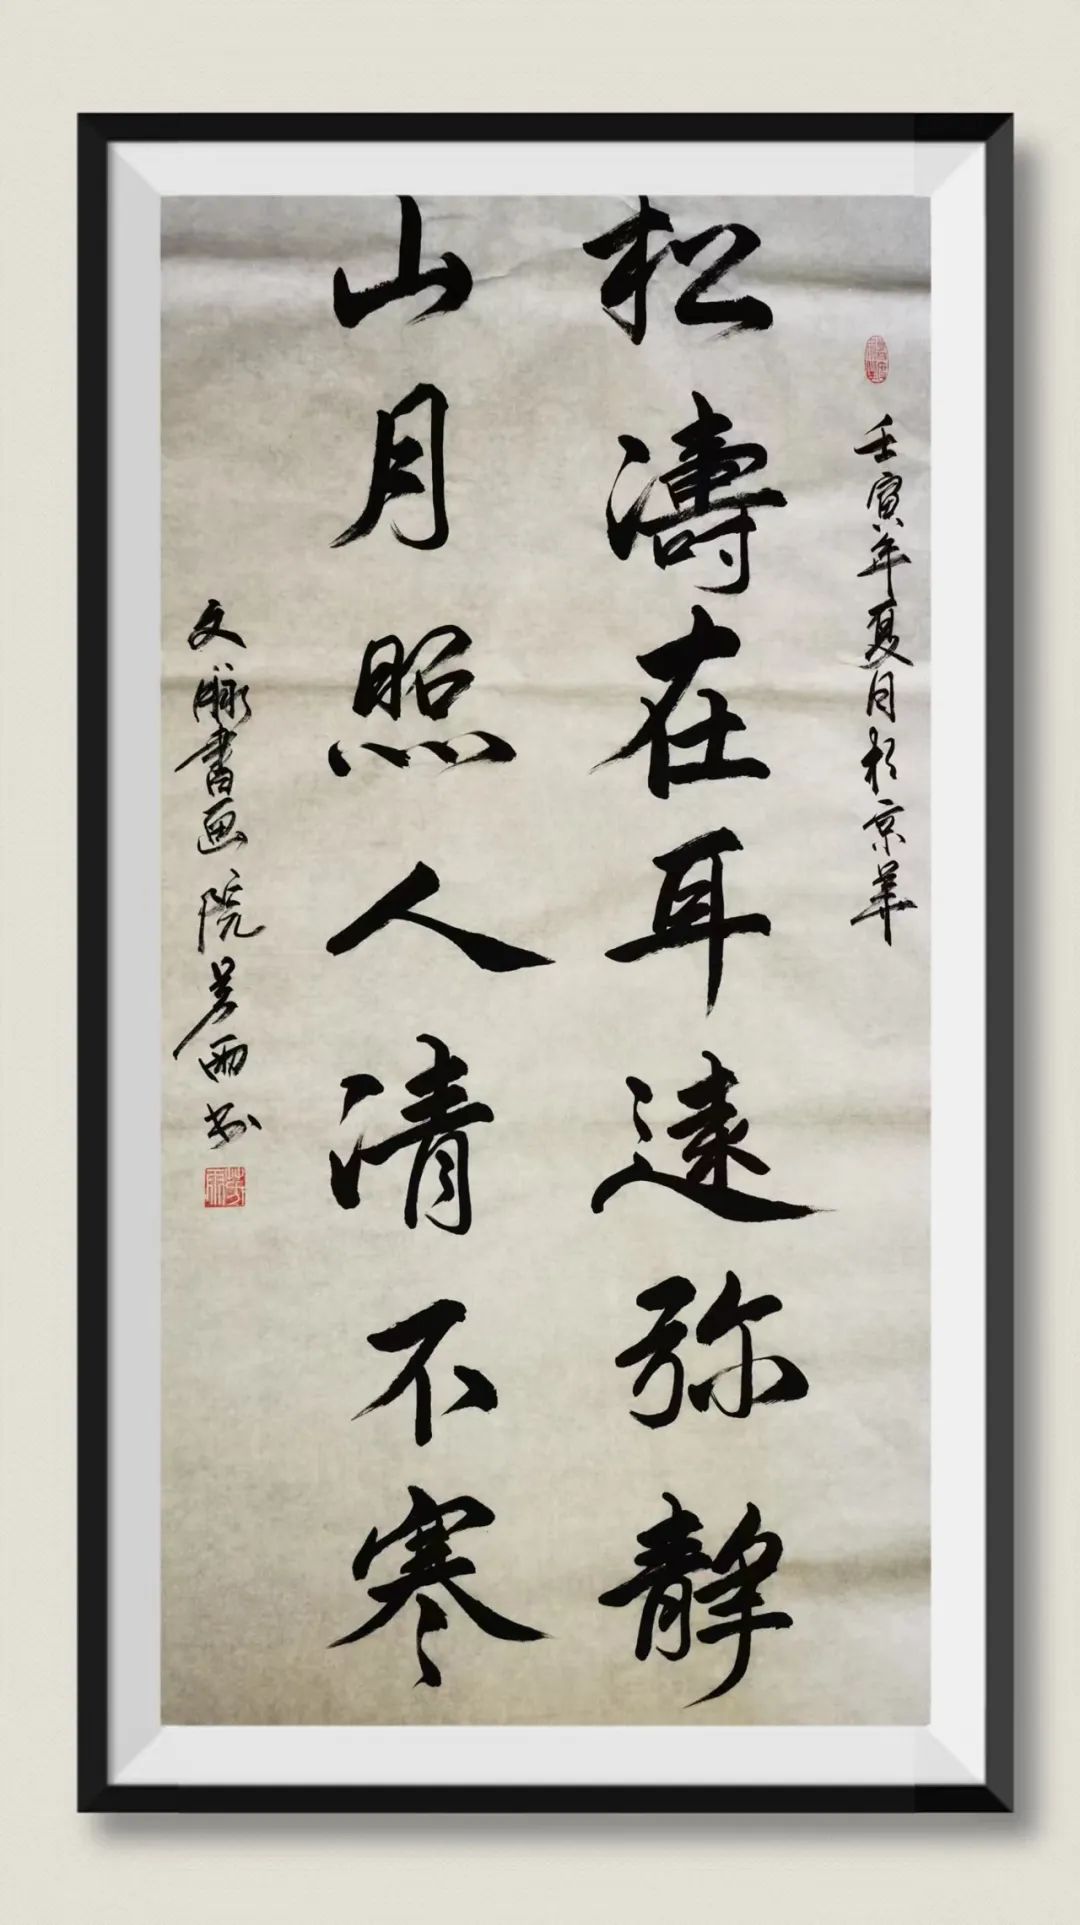 壬寅年夏月於京華
松濤在耳遠弥静
山月照人清不寒
文脉書画院芳雨书